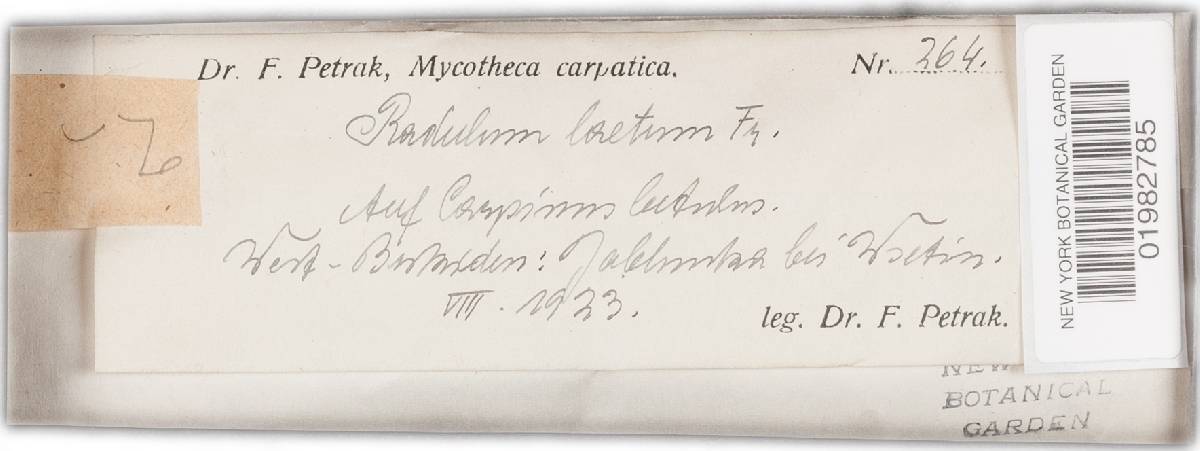 Dr. F. Petrak, Mycotheca carpatica. Nr. 264.
Radulum laetum Fr.
Auf Carpinus betulus.
West-Beskiden: Jablunka bei Wsetin.
VIII. 1923.
leg. Dr. F. Petrak.
NEW YORK BOTANICAL GARDEN
01982785
NEW
BOTANICAL
GARDEN